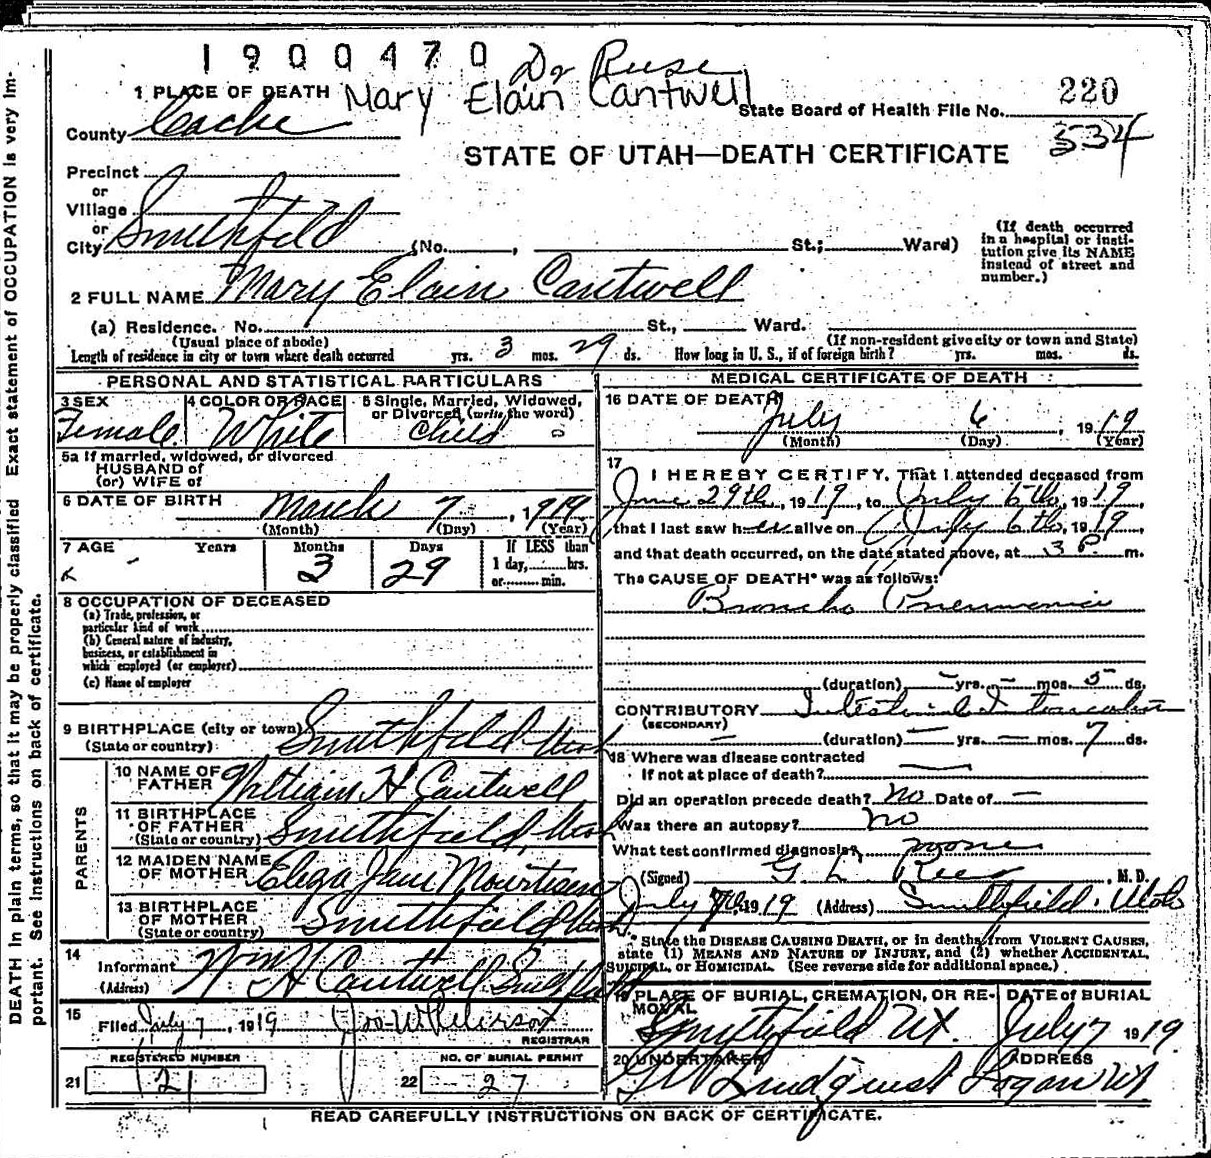 1900470
Dr Reese
Mary Elain Cantwell
1 PLACE OF DEATH
State Board of Health File No. 220
County Cache
534
STATE OF UTAH—DEATH CERTIFICATE
Precinct
or
Village
or
City Smithfield (No. , St.; Ward)
(If death occurred in a hospital or institution give its NAME instead of street and number.)
2 FULL NAME Mary Elain Cantwell
(a) Residence. No. St., Ward.
(Usual place of abode) (If non-resident give city or town and State)
Length of residence in city or town where death occurred yrs. 3 mos. 29 ds. How long in U. S., if of foreign birth? yrs. mos. ds.
PERSONAL AND STATISTICAL PARTICULARS
3 SEX Female
4 COLOR OR RACE White
5 Single, Married, Widowed, or Divorced (write the word) Child
5a If married, widowed, or divorced
HUSBAND of
(or) WIFE of
6 DATE OF BIRTH March 7, 1919
(Month) (Day) (Year)
7 AGE Years Months 3 Days 29
If LESS than
1 day, hrs.
or min.
8 OCCUPATION OF DECEASED
(a) Trade, profession, or
particular kind of work
(b) General nature of industry,
business, or establishment in
which employed (or employer)
(c) Name of employer
9 BIRTHPLACE (city or town) Smithfield Utah
(State or country)
PARENTS
10 NAME OF FATHER William H Cantwell
11 BIRTHPLACE OF FATHER Smithfield, Utah
(State or country)
12 MAIDEN NAME OF MOTHER Eliza Jane Mouritsen
13 BIRTHPLACE OF MOTHER Smithfield Utah
(State or country)
14
Informant Wm H Cantwell
(Address) Smithfield
15
Filed July 7, 1919 Jos. W. Peterson
REGISTRAR
REGISTERED NUMBER
21 21
NO. OF BURIAL PERMIT
22 27
MEDICAL CERTIFICATE OF DEATH
16 DATE OF DEATH July 6, 1919
(Month) (Day) (Year)
17
I HEREBY CERTIFY, That I attended deceased from
June 29th, 1919, to July 6th, 1919
that I last saw her alive on July 6th, 1919,
and that death occurred, on the date stated above, at 3 P. m.
The CAUSE OF DEATH* was as follows:
Broncho Pneumonia
(duration) — yrs. — mos. 5 ds.
CONTRIBUTORY Intestinal Intoxication
(SECONDARY)
(duration) — yrs. — mos. 7 ds.
18 Where was disease contracted
If not at place of death? —
Did an operation precede death? No Date of —
Was there an autopsy? no
What test confirmed diagnosis? none
(Signed) G. L. Rees, M. D.
July 7th, 1919 (Address) Smithfield, Utah
* State the DISEASE CAUSING DEATH, or in deaths from VIOLENT CAUSES,
state (1) MEANS AND NATURE OF INJURY, and (2) whether ACCIDENTAL,
SUICIDAL, or HOMICIDAL. (See reverse side for additional space.)
19 PLACE OF BURIAL, CREMATION, OR REMOVAL Smithfield Ut.
DATE of BURIAL July 7 1919
20 UNDERTAKER Lindquist
ADDRESS Logan Ut
READ CAREFULLY INSTRUCTIONS ON BACK OF CERTIFICATE.
DEATH in plain terms, so that it may be properly classified Exact statement of OCCUPATION is very im-
portant. See instructions on back of certificate.